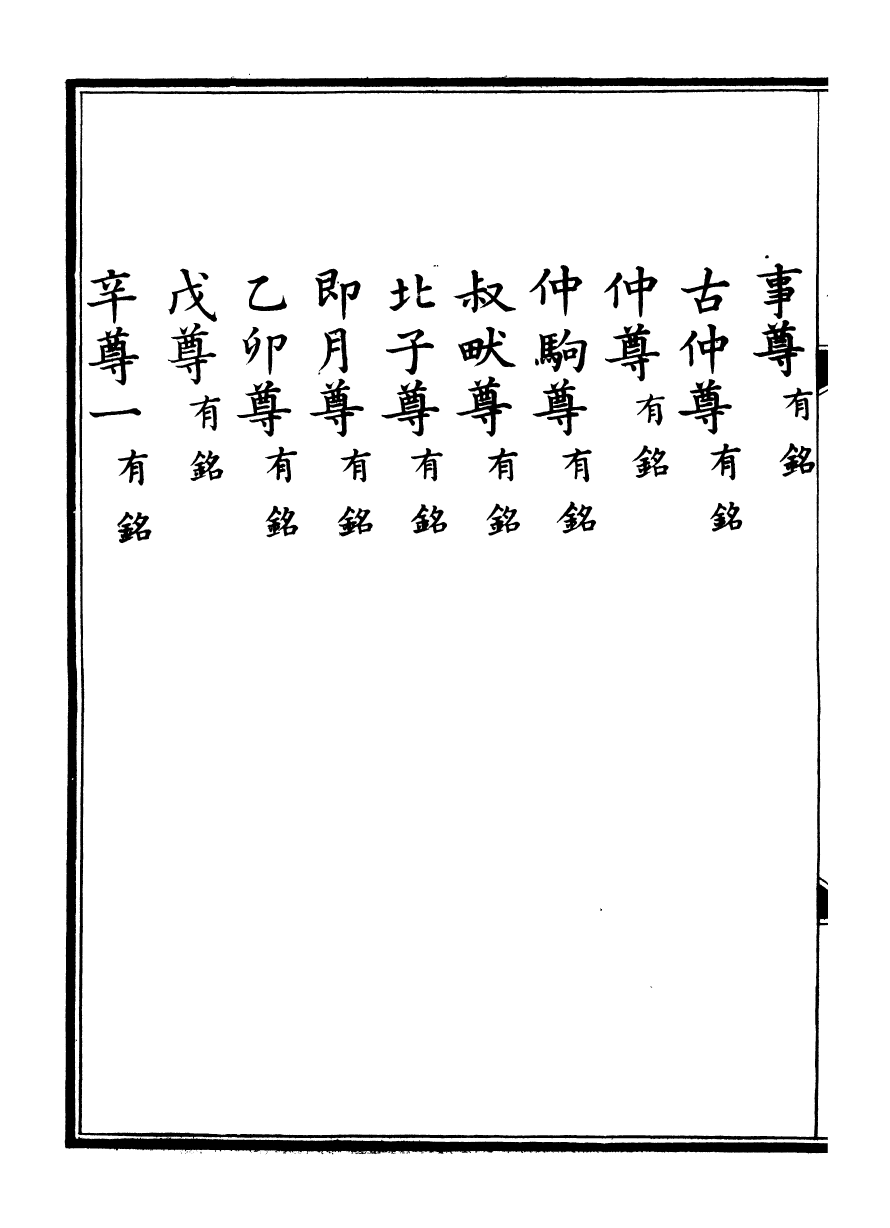 事尊有銘
古仲尊有銘
仲尊有銘
仲駒尊有銘
叔畎尊有銘
北子尊有銘
即月尊有銘
乙卯尊有銘
戊尊有銘
辛尊一有銘